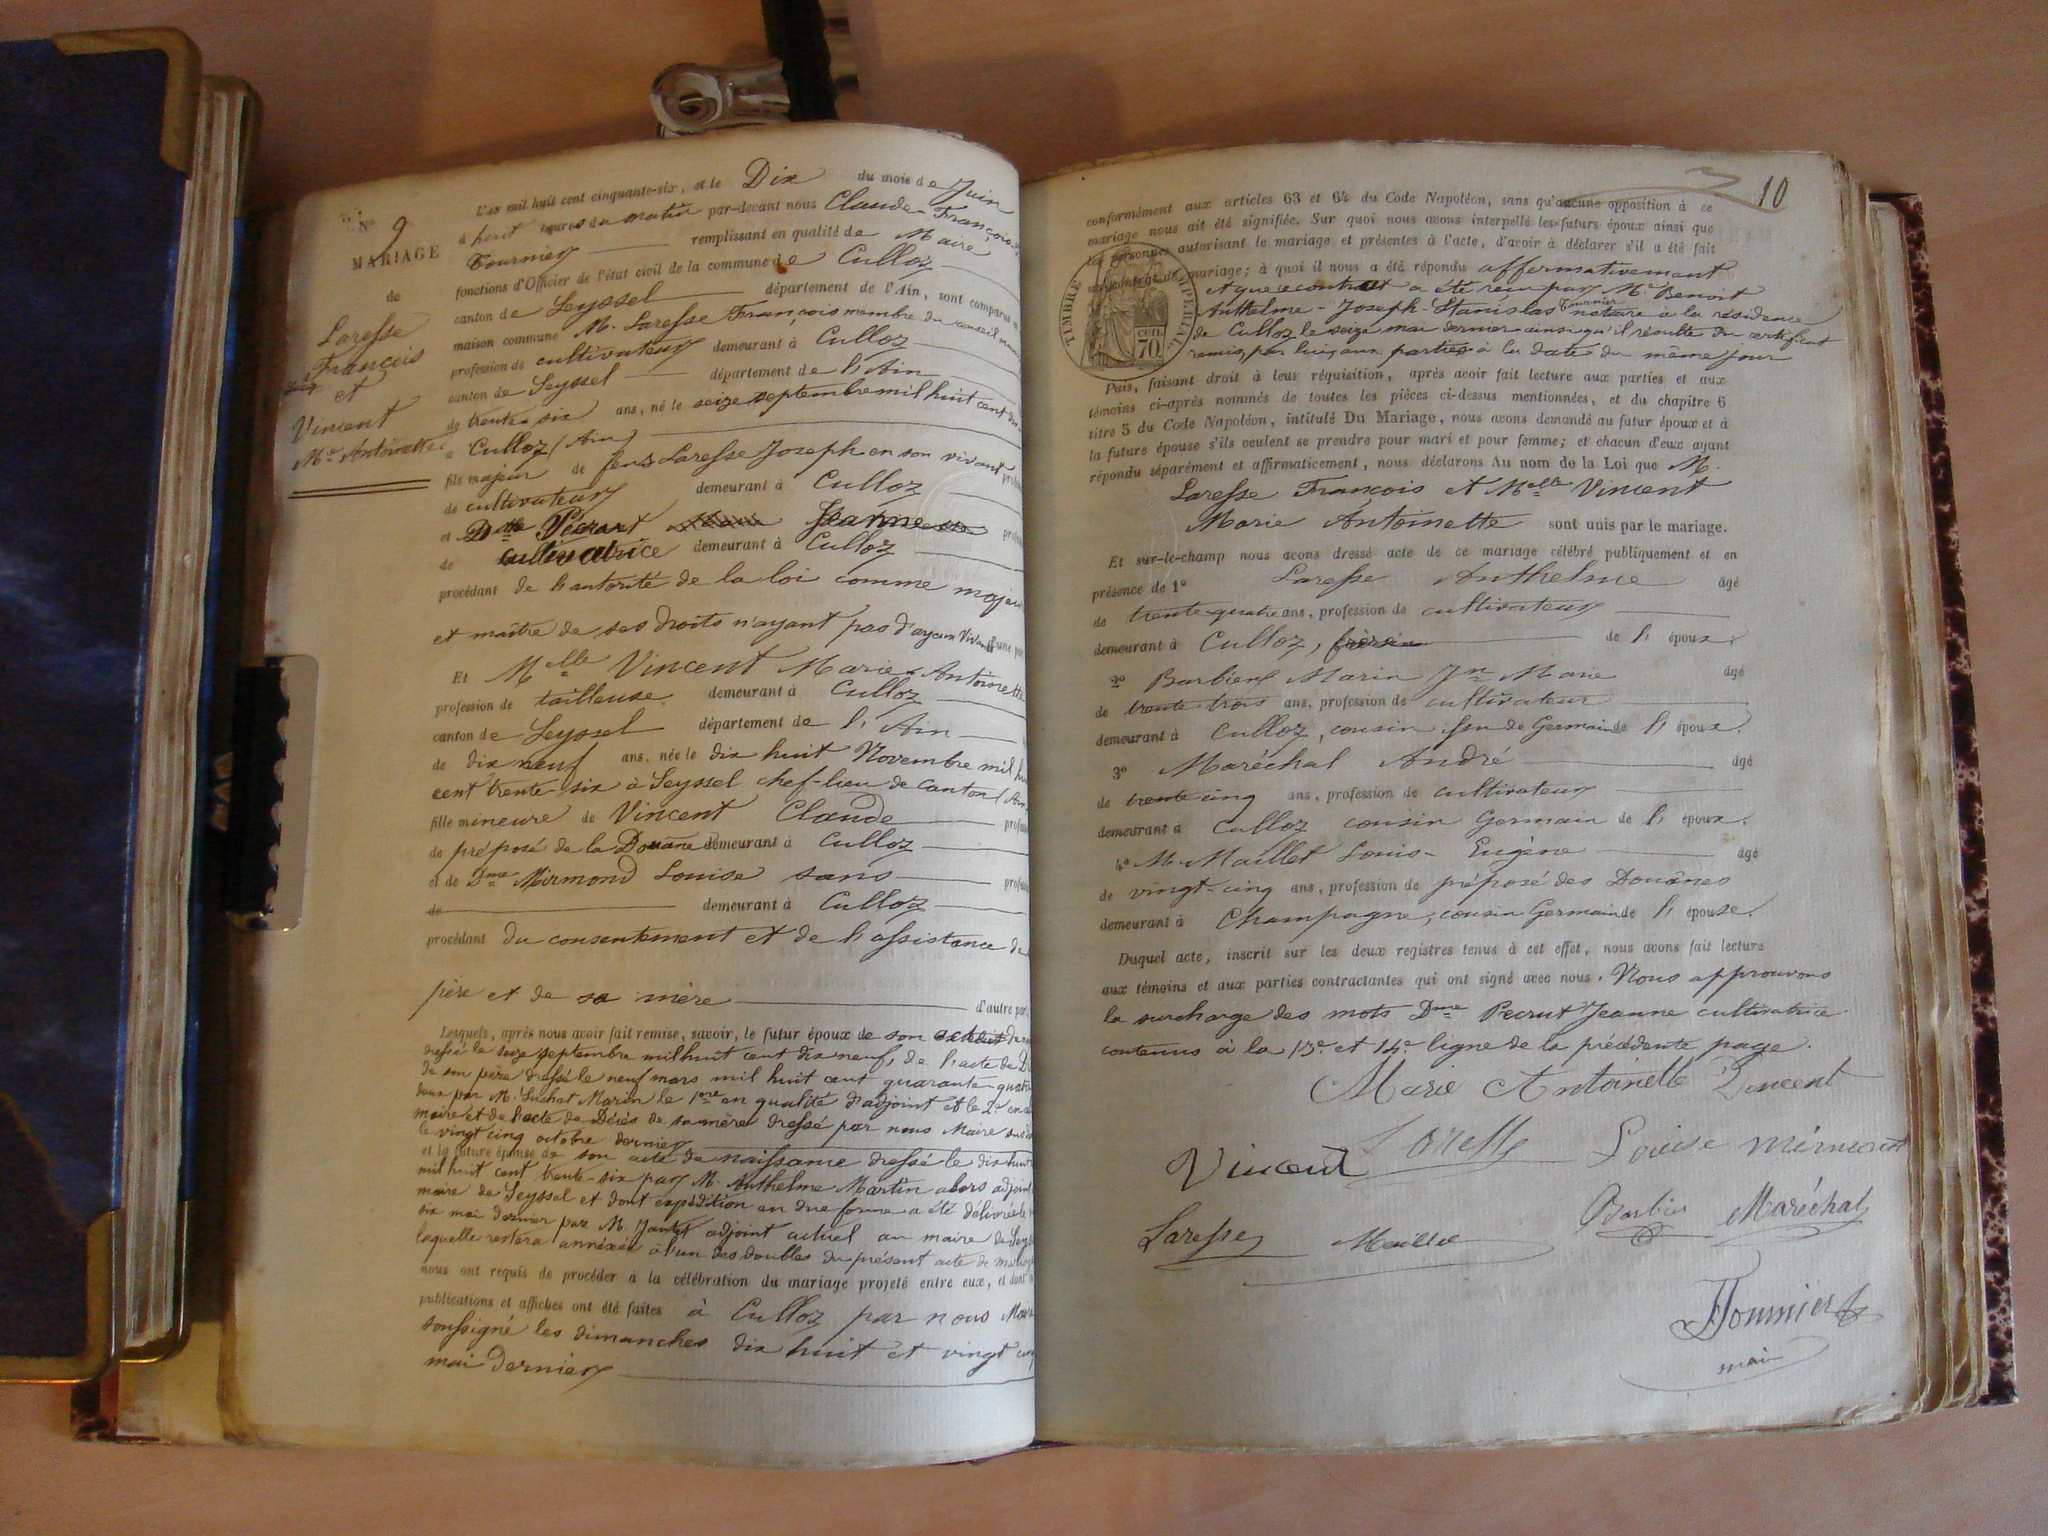 N° 9
MARIAGE
de
Laresse
François
et
Vincent
Mie Antoinette
L'an mil huit cent cinquante-six, et le Dix du mois de Juin
à huit heures du matin par-devant nous Claude-François
Fournier remplissant en qualité de Maire
fonctions d'Officier de l'état civil de la commune de Culloz
canton de Seyssel département de l'Ain, sont comparus en
maison commune M. Laresse François membre du conseil
profession de cultivateur demeurant à Culloz
canton de Seyssel département de l'Ain
de trente-six ans, né le seize septembre mil huit cent dix
à Culloz (Ain)
fils majeur de feus Laresse Joseph en son vivant
de cultivateur demeurant à Culloz
et Dme Pécrut Jeanne
de cultivatrice demeurant à Culloz
procédant de l'autorité de la loi comme majeur
et maître de ses droits n'ayant pas d'ayeux vivants d'une part
Et Melle Vincent Marie-Antoinette
profession de tailleuse demeurant à Culloz
canton de Seyssel département de l'Ain
de dix neuf ans, née le dix huit Novembre mil huit
cent trente-six à Seyssel chef-lieu de canton (Ain
fille mineure de Vincent Claude
de préposé de la Douane demeurant à Culloz
et de Dme Mirmond Louise sans
de demeurant à Culloz
procédant du consentement et de l'assistance de
père et de sa mère d'autre part
Lesquels, après nous avoir fait remise, savoir, le futur époux de son extrait de
dressé le seize septembre mil huit cent dix neuf, de l'acte de D
de son père dressé le neuf mars mil huit cent quarante-quatre
tous par M. Luchat Marin le 1er en qualité d'adjoint et le 2e en
maire et de l'acte de Décès de sa mère dressé par nous Maire
le vingt cinq octobre dernier
et la future épouse de son acte de naissance dressé le dix huit
mil huit cent trente-six par M. Anthelme Martin alors adjoint
maire de Seyssel et dont expédition en due forme a été délivrée le
six mai dernier par M. adjoint actuel au maire de Seyssel
laquelle restera annéxée à l'un des doubles du présent acte de mariage
nous ont requis de procéder à la célébration du mariage projeté entre eux, et dont
publications et affiches ont été faites à Culloz par nous Maire
soussigné les dimanches dix huit et vingt cinq
mai dernier
10
conformément aux articles 63 et 64 du Code Napoléon, sans qu'aucune opposition à ce
mariage nous ait été signifiée. Sur quoi nous avons interpellé les futurs époux ainsi que
les personnes autorisant le mariage et présentes à l'acte, d'avoir à déclarer s'il a été fait
un contrat de mariage; à quoi il nous a été répondu affermativement
et que ce contrat a été reçu par Me Benoit
Anthelme-Joseph-Stanislas Fournier notaire à la résidence
de Culloz le seize mai dernier ainsi qu'il résulte du certificat
remis par lui aux parties à la date du même jour
TIMBRE IMPERIAL
70 CEN.
Puis, faisant droit à leur réquisition, après avoir fait lecture aux parties et aux
témoins ci-après nommés de toutes les pièces ci-dessus mentionnées, et du chapitre 6
titre 5 du Code Napoléon, intitulé Du Mariage, nous avons demandé au futur époux et à
la future épouse s'ils veulent se prendre pour mari et pour femme; et chacun d'eux ayant
répondu séparément et affirmativement, nous déclarons Au nom de la Loi que M.
Laresse François et Melle Vincent
Marie Antoinette sont unis par le mariage.
Et sur-le-champ nous avons dressé acte de ce mariage célébré publiquement et en
présence de 1° Laresse Anthelme âgé
de trente-quatre ans, profession de cultivateur
demeurant à Culloz, frère de l'époux.
2° Barbier Marin Jn Marie âgé
de trente trois ans, profession de cultivateur
demeurant à Culloz, cousin issu de Germain de l'époux.
3° Maréchal André âgé
de trente cinq ans, profession de cultivateur
demeurant à Culloz cousin Germain de l'époux.
4° M. Maillet Louis-Eugène âgé
de vingt-cinq ans, profession de préposé des Douanes
demeurant à Champagne, cousin Germain de l'épouse.
Duquel acte, inscrit sur les deux registres tenus à cet effet, nous avons fait lecture
aux témoins et aux parties contractantes qui ont signé avec nous. Nous approuvons
la surcharge des mots Dme Pecrut Jeanne cultivatrice
contenus à la 13e et 14e ligne de la précédente page.
Marie Antoinette Vincent
Vincent Laresse Louise mirmont
Laresse Maillet Barbier Maréchal
Fournier
maire